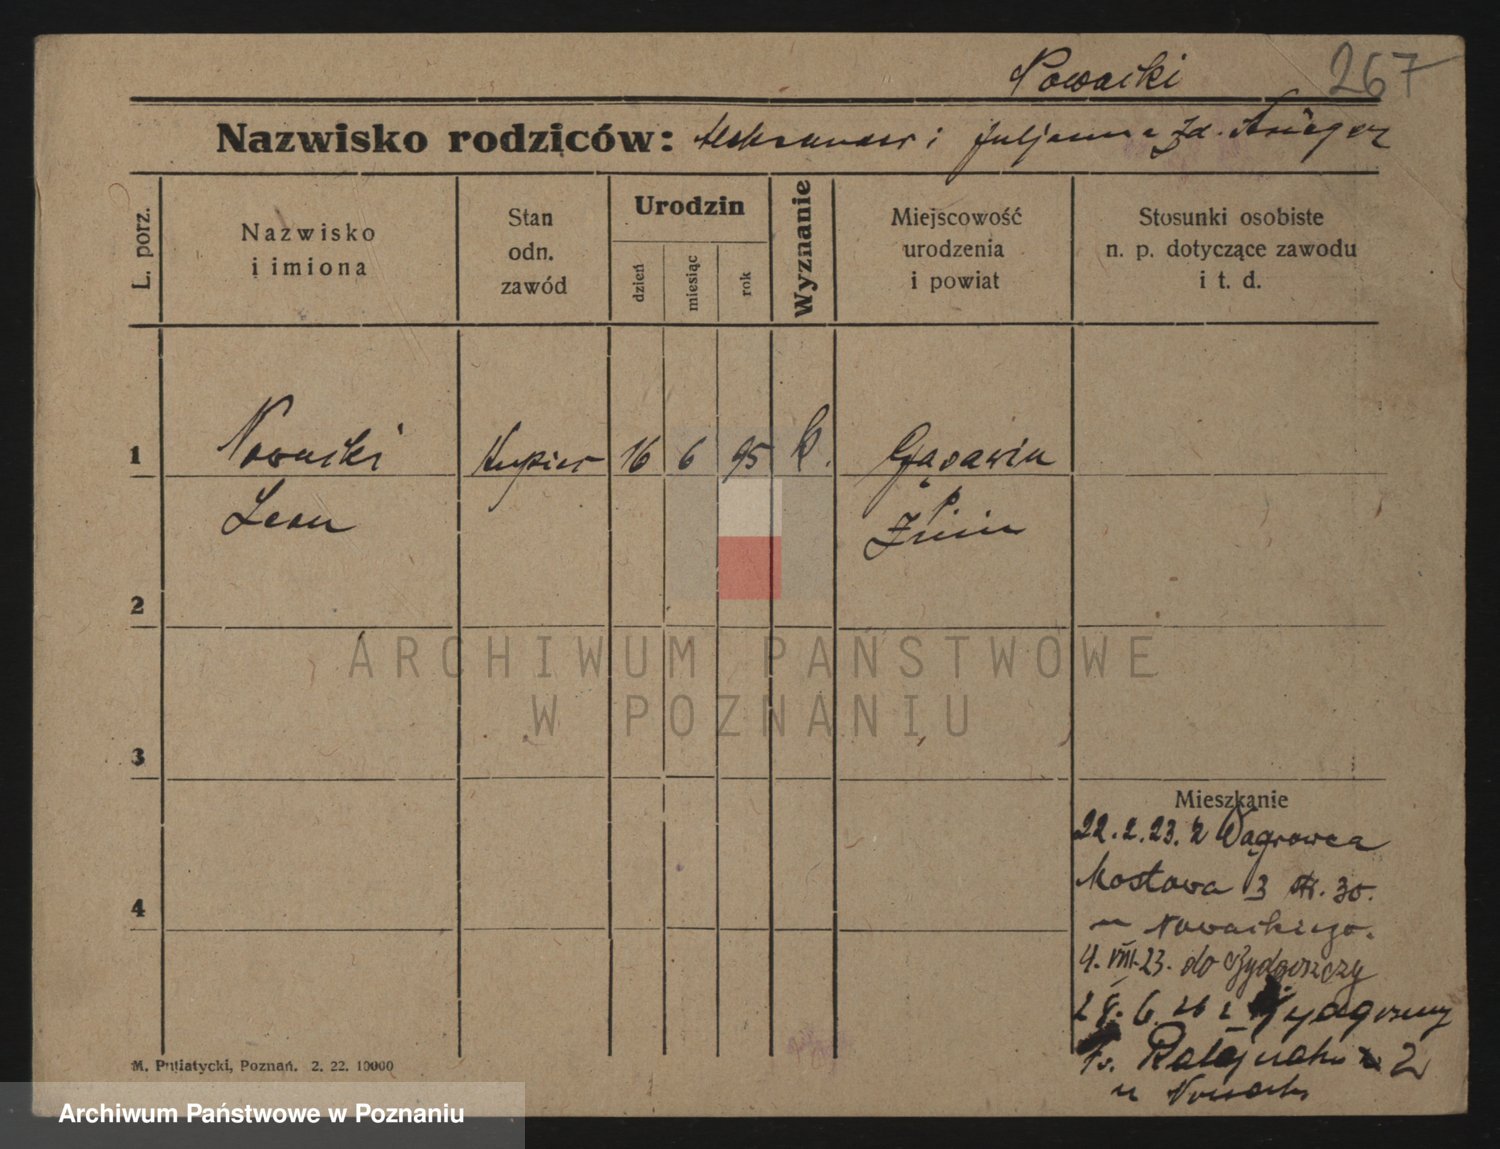 Nowacki 267
Nazwisko rodziców: Aleksander i Juljanna zd.
L. porz.
Nazwisko
i imiona
Stan
odn.
zawód
Urodzin
dzień
miesiąc
rok
Wyznanie
Miejscowość
urodzenia
i powiat
Stosunki osobiste
n. p. dotyczące zawodu
i t. d.
1 Nowacki Kupiec 16 6 95 k. Gąsawia
Leon p.
Żnin
2
3
4
ARCHIWUM PAŃSTWOWE
W POZNANIU
Mieszkanie
22.2.23. z Wągrowca
Mostowa 3 30.
u Nowackiego.
4. VIII.23. do Bydgoszczy
28. 6. 26 z Bydgoszczy
2
u Nowack
M. Putiatycki, Poznań. 2. 22. 10000
Archiwum Państwowe w Poznaniu